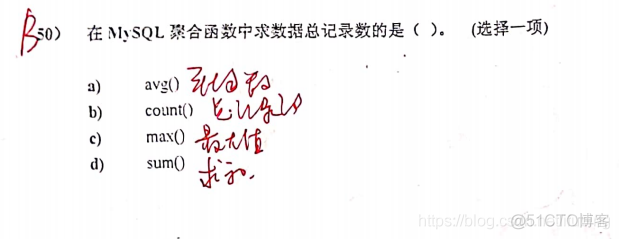 B 50) 在 MySQL 聚合函数中求数据总记录数的是（ ）。 (选择一项)
a) avg() 平均数
b) count() 总记录数
c) max() 最大值
d) sum() 求和.
https://blog.cs @51CTO博客